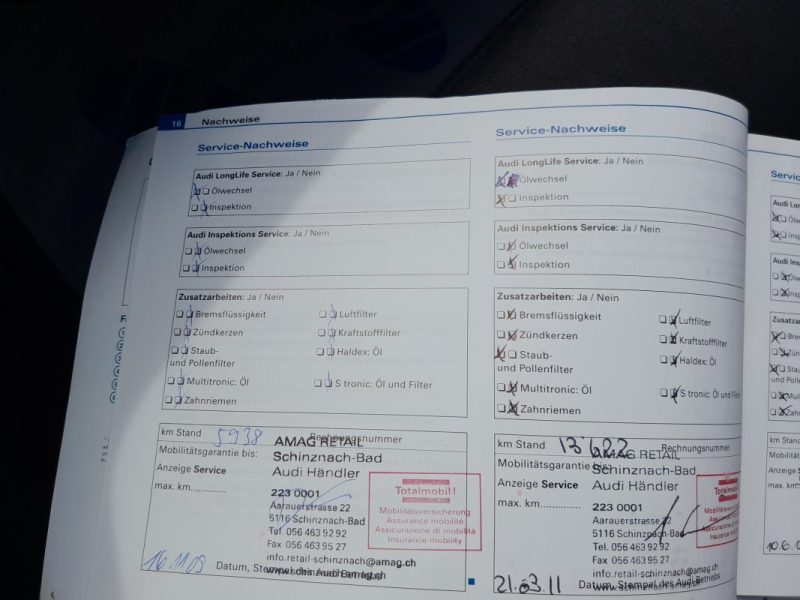 16 Nachweise
Service-Nachweise
Audi LongLife Service: Ja / Nein
Ölwechsel
Inspektion
Audi Inspektions Service: Ja / Nein
Ölwechsel
Inspektion
Zusatzarbeiten: Ja / Nein
Bremsflüssigkeit
Luftfilter
Zündkerzen
Kraftstofffilter
Staub-
und Pollenfilter
Haldex: Öl
Multitronic: Öl
S tronic: Öl und Filter
Zahnriemen
km Stand 5938 Rechnungsnummer
AMAG RETAIL
Mobilitätsgarantie bis:
Schinznach-Bad
Anzeige Service
Audi Händler
max. km..............
223 0001
Aarauerstrasse 22
5116 Schinznach-Bad
Tel. 056 463 92 92
Fax 056 463 95 27
info.retail-schinznach@amag.ch
Totalmobil!
Mobilitätsversicherung
Assurance mobilité
Assicurazione di mobilità
Insurance mobility
16.11.09
Datum, Stempel des Audi Betriebs
Service-Nachweise
Audi LongLife Service: Ja / Nein
Ölwechsel
Inspektion
Audi Inspektions Service: Ja / Nein
Ölwechsel
Inspektion
Zusatzarbeiten: Ja / Nein
Bremsflüssigkeit
Luftfilter
Zündkerzen
Kraftstofffilter
Staub-
und Pollenfilter
Haldex: Öl
Multitronic: Öl
S tronic: Öl und Filter
Zahnriemen
km Stand 13'622 Rechnungsnummer
AMAG RETAIL
Mobilitätsgarantie bis:
Schinznach-Bad
Anzeige Service
Audi Händler
max. km..............
223 0001
Aarauerstrasse 22
5116 Schinznach-Bad
Tel. 056 463 92 92
Fax 056 463 95 27
info.retail-schinznach@amag.ch
Totalmobil!
Mobilitätsversicherung
Assurance mobilité
Assicurazione di mobilità
Insurance mobility
21.03.11
Datum, Stempel des Audi Betriebs